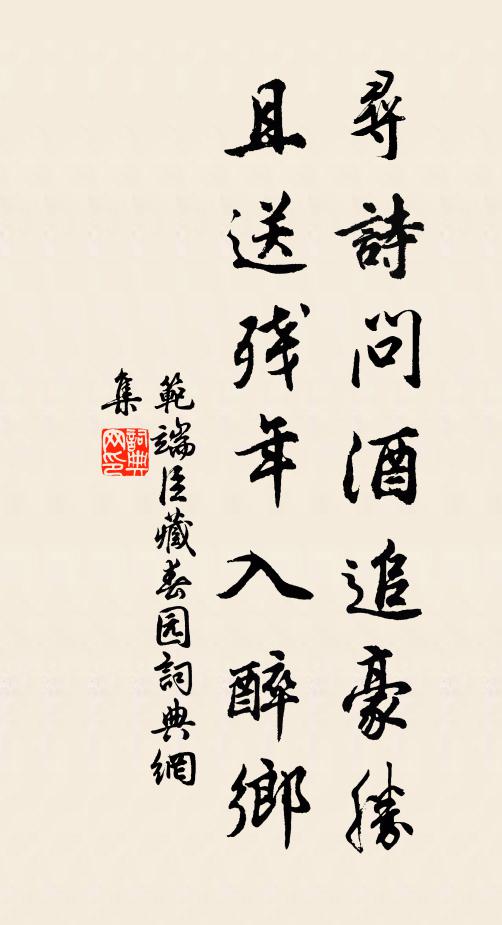 尋詩問酒追豪勝
且送残年入醉鄉
範端臣藏春园詞典網
集
詞典
网印